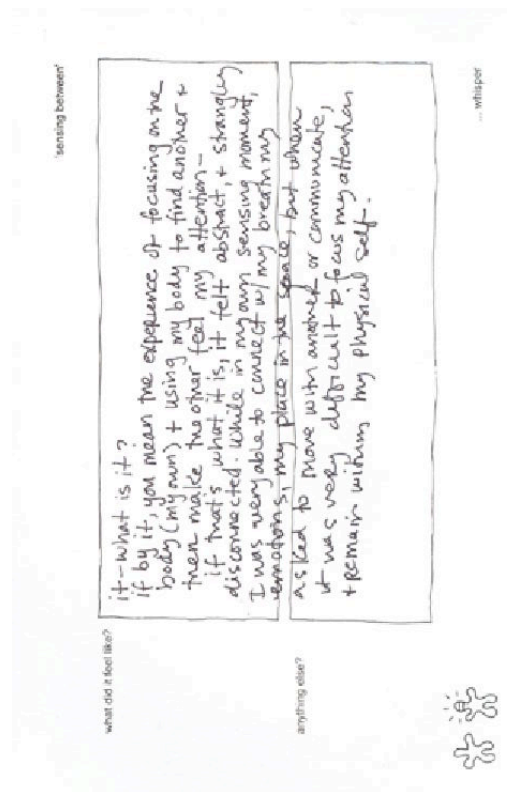 'sensing between'
what did it feel like?
it - what is it?
if by it, you mean the experience of focusing on the
body (my own) + using my body to find another +
then make the other feel my attention -
if that's what it is, it felt abstract, + strangly
disconnected. While in my own sensing moment,
I was very able to connect w/ my breath my
emotions, my place in the space, but when
asked to move with another or communicate,
it was very difficult to focus my attention
+ remain within my physical self.
anything else?
... whisper